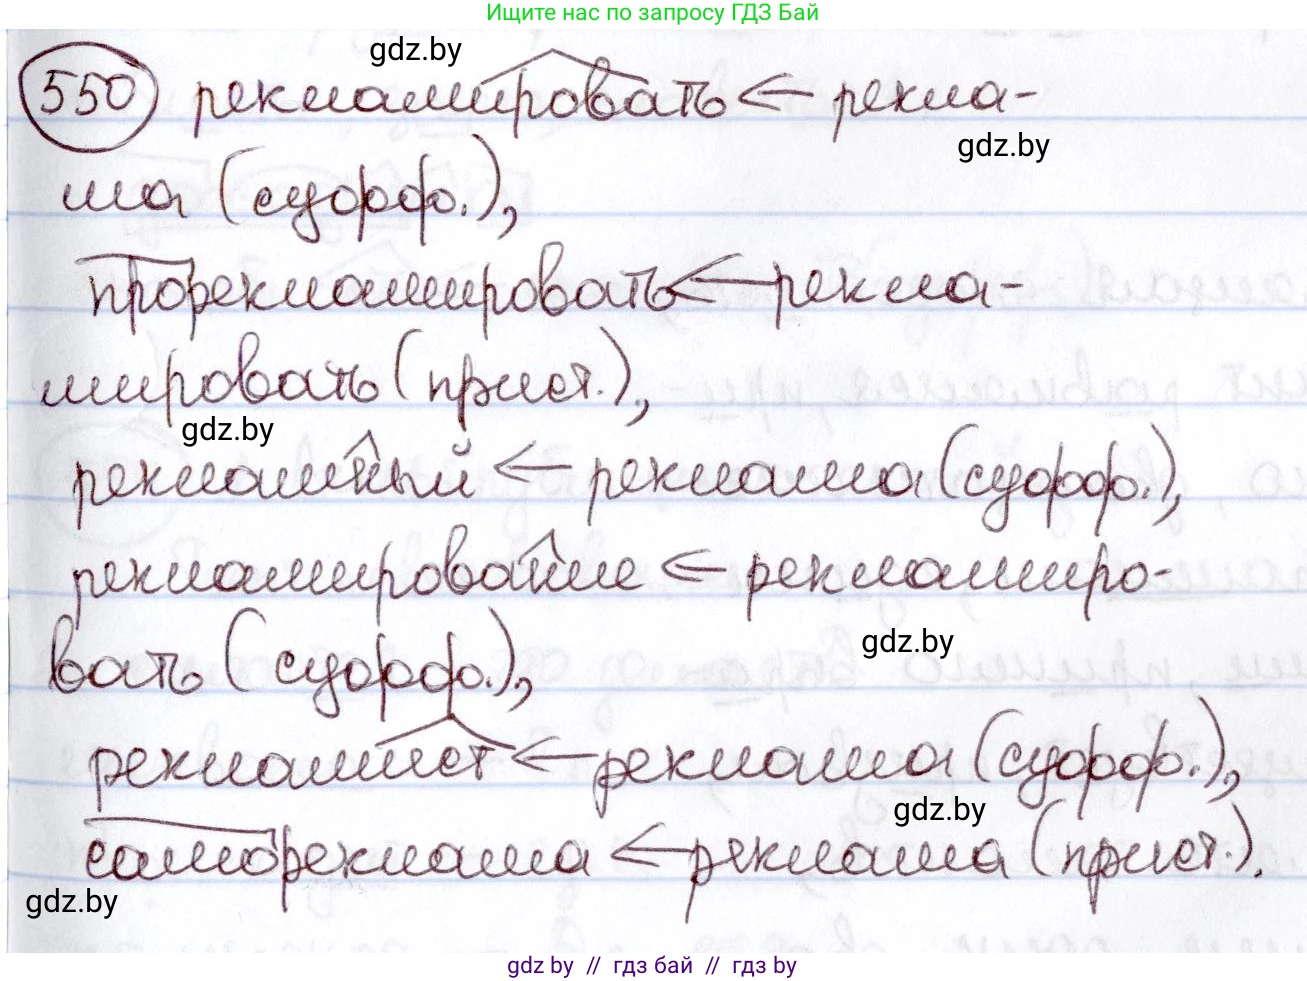 Ищите нас по запросу ГДЗ Бай
gdz.by
550 рекламировать ← рекла-
gdz.by
ма (суфф.),
прорекламировать ← рекла-
мировать (прист.),
gdz.by
рекламный ← реклама (суфф.),
рекламирование ← рекламиро-
gdz.by
вать (суфф.),
рекламист ← реклама (суфф.),
gdz.by
самореклама ← реклама (прист.).
gdz.by
gdz by // гдз бай // гдз by